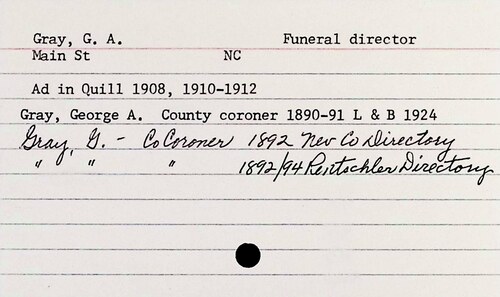 Gray, G. A. Funeral director
Main St NC
Ad in Quill 1908, 1910-1912
Gray, George A. County coroner 1890-91 L & B 1924
Gray, G. - Co Coroner 1892 Nev Co Directory
" " " 1892/94 Rentschler Directory